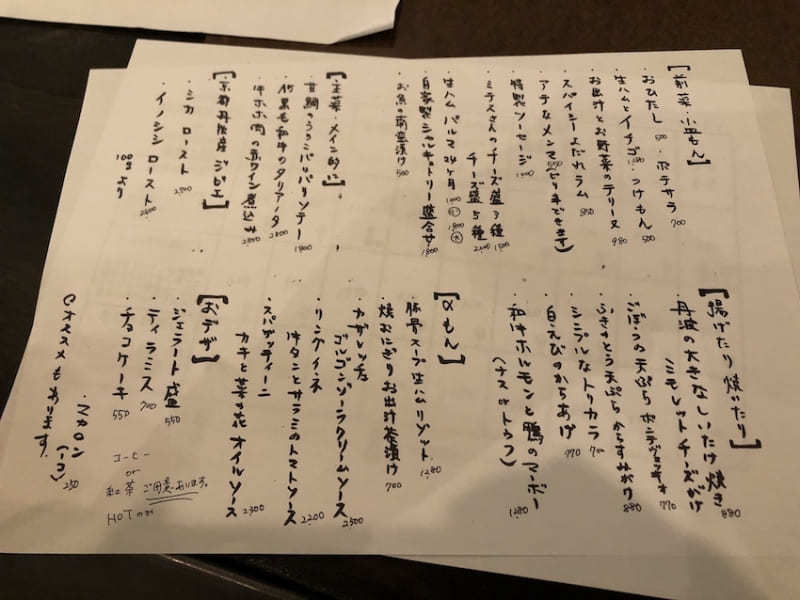 【前菜・小皿もん】
・おひたし 500 ・ポテサラ 700
・生ハムとイチゴ ・つけもん 500
・お出汁とお野菜のテリーヌ 980
・スパイシーよだれラム 880
・アテなメンマ
・特製ソーセージ
・ミテスさんのチーズ盛3種 1500
チーズ盛5種 2400
・生ハム パルマ24ヶ月
・自家製シャルキュトリー盛合せ 1800
・お魚の南蛮漬け 500
【主菜・メイン的に】
・甘鯛のうろこパリパリソテー 1800
・竹黒毛和牛のタリアータ 2800
・牛ホホ肉の赤ワイン煮込み 2800
【京都丹波産ジビエ】
・シカ ロースト
・イノシシ ロースト
100gより
【揚げたり焼いたり】
・丹波の大きなしいたけ焼き 880
ミモレットチーズがけ 770
・ごぼうの天ぷら
・ふきのとう天ぷら からすみがけ 880
・シンプルなトリカラ 700
・白えびのからあげ 770
・和牛ホルモンと鴨のマーボー 1280
(ナスorトウフ)
【〆もん】
・豚骨スープ生ハムリゾット 1280
・焼おにぎりお出汁茶漬け 700
・カザレッチェ
ゴルゴンゾーラクリームソース 2500
・リングイネ
牛タンとサラミのトマトソース 2200
・スパゲッティーニ
カキと菜の花 オイルソース 2300
【おデザ】
・ジェラート盛 550
・ティラミス 700
・チョコケーキ 550
・マカロン(一コ) 250
オススメもあります.
コーヒー
or
紅茶 ご用意あります。
HOTのみ